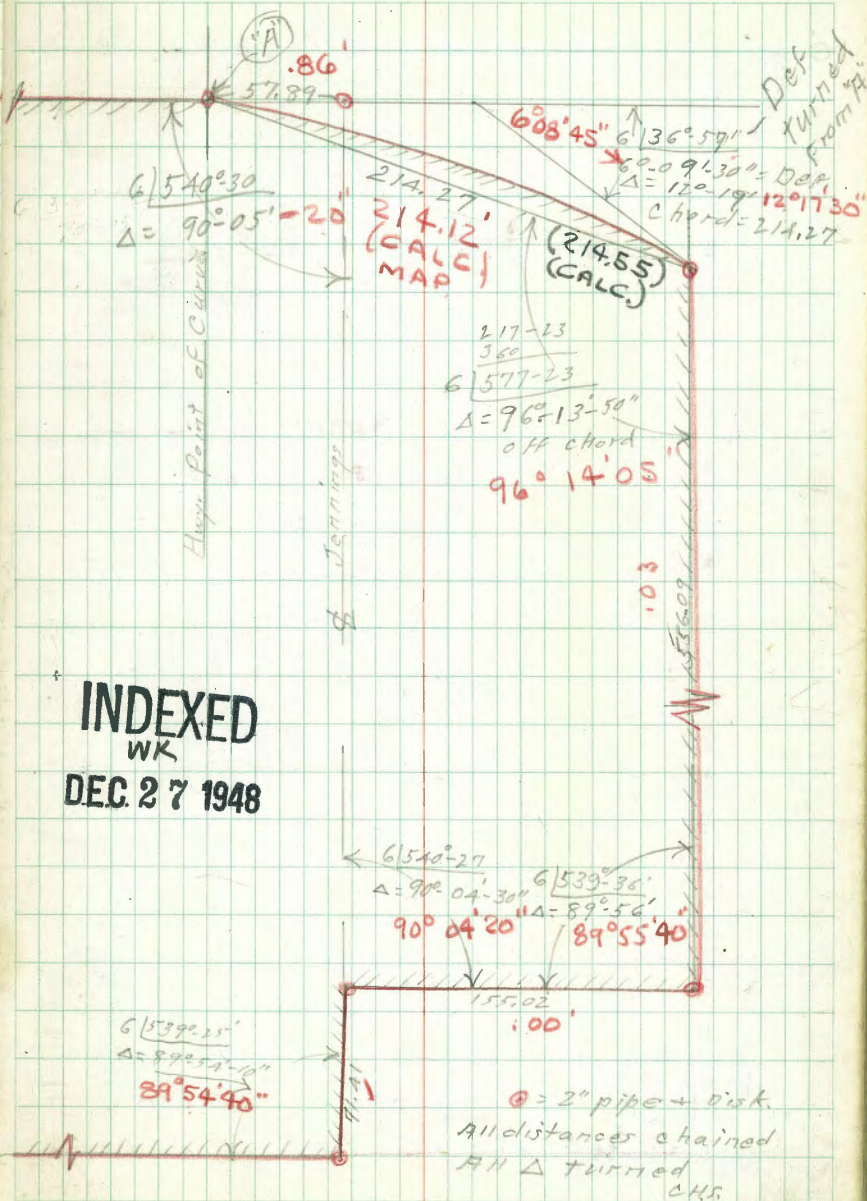 "A"
.86'
57.89
Def
turned
from "A"
6°08'45"
6 | 36°-57'
6°-09'-30" = Def
Δ = 12°-19' 12°17'30"
Chord = 214.27
6 | 540°-30
Δ = 90°-05' -20"
214.27
214.12'
(CALC)
MAP
(214.55)
(CALC.)
Hwy. Point of Curve
217-23
360
6 | 577-23
Δ = 96°-13'-50"
off chord
96° 14' 05"
Jennings
.03
556.09
INDEXED
WK
DEC. 27 1948
6 | 540°-27
Δ = 90°-04'-30"
90° 04' 20"
6 | 539°-36'
Δ = 89°-56'
89°55'40"
155.02
.00'
6 | 539°-25'
Δ = 89°-54'-10"
89°54'40"
91.41
= 2" pipe + Disk.
All distances chained
All Δ turned